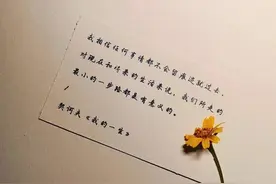 我相信任何事情都不会留痕迹就过去，
对现在和将来的生活来说，我们所走的
最小的一步路都是有意义的。
/
契诃夫《我的一生》